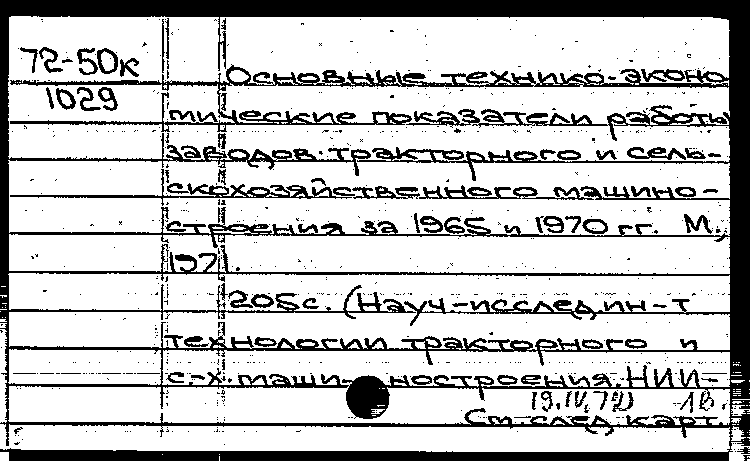 72-50к
1029
Основные технико-эконо
мические показатели работы
заводов тракторного и сель-
скохозяйственного машино-
строения за 1965 и 1970 гг. М.,
1971.
205с. (Науч.-исслед.ин-т
технологии тракторного и
с.-х. маши- ностроения.НИИ-
19.IV.72) 1в.
См.след.карт.